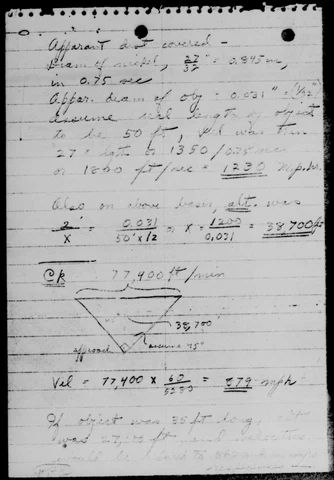 Apparant dist covered -
Diam of nickel, 27/32" = 0.845 in,
in 0.75 sec
Appar. diam of obj = 0.031" = (1/32")
Assume real length of object
to be 50 ft, was then
27 lgth or 1350 / 0.75 sec
or 1800 ft/sec = 1230 m.p.hr.
Also on above basis, alt. was
2'/x = 0.031/50'x12 or x = 1200/0.031 = 38,700 ft
Ck 77,400 ft / min
38,700
approach
assume 45°
Vel = 77,400 x 60/5280 = 879 mph
If object was 35 ft long, alt
was ft and